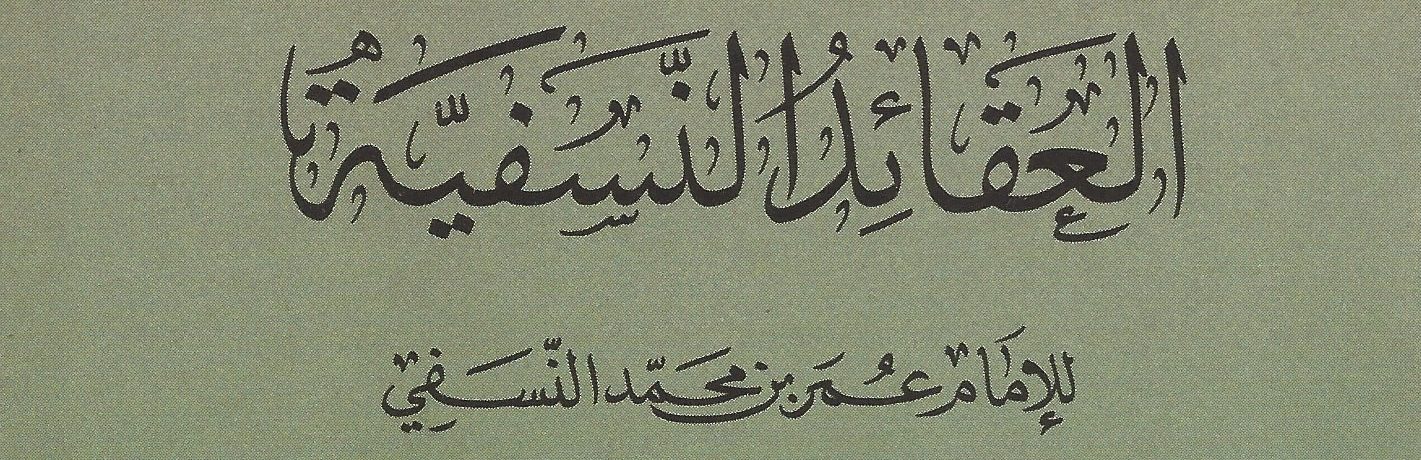 العقائد النسفية
للإمام عمر بن محمد النسفي